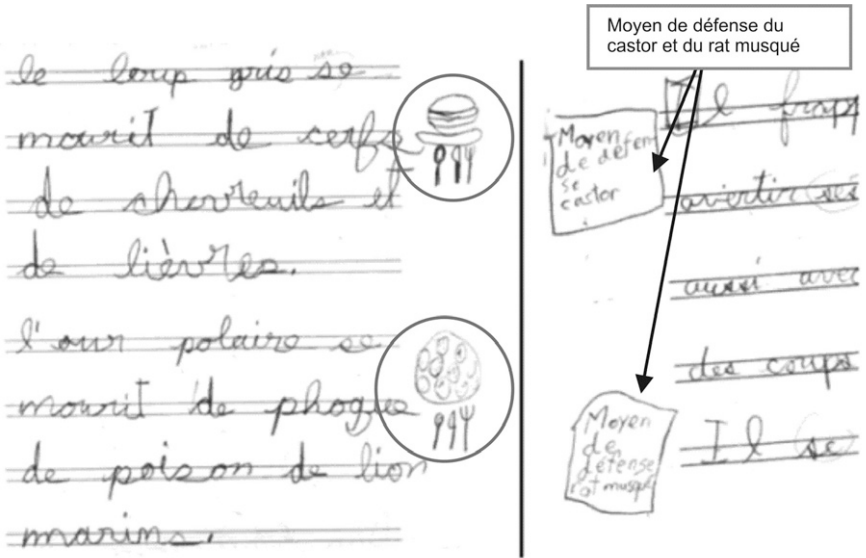 le loup gris se
mourit de cerfs
de chevreuils et
de lièvres.
l'our polaire se
mourit de phogue
de poison de lion
marins.
Moyen de défense du
castor et du rat musqué
Moyen
de défen
se
castor
Il frapp
avertir ses
aussi avec
des coups
Moyen
de
défense
rat musqué
Il se